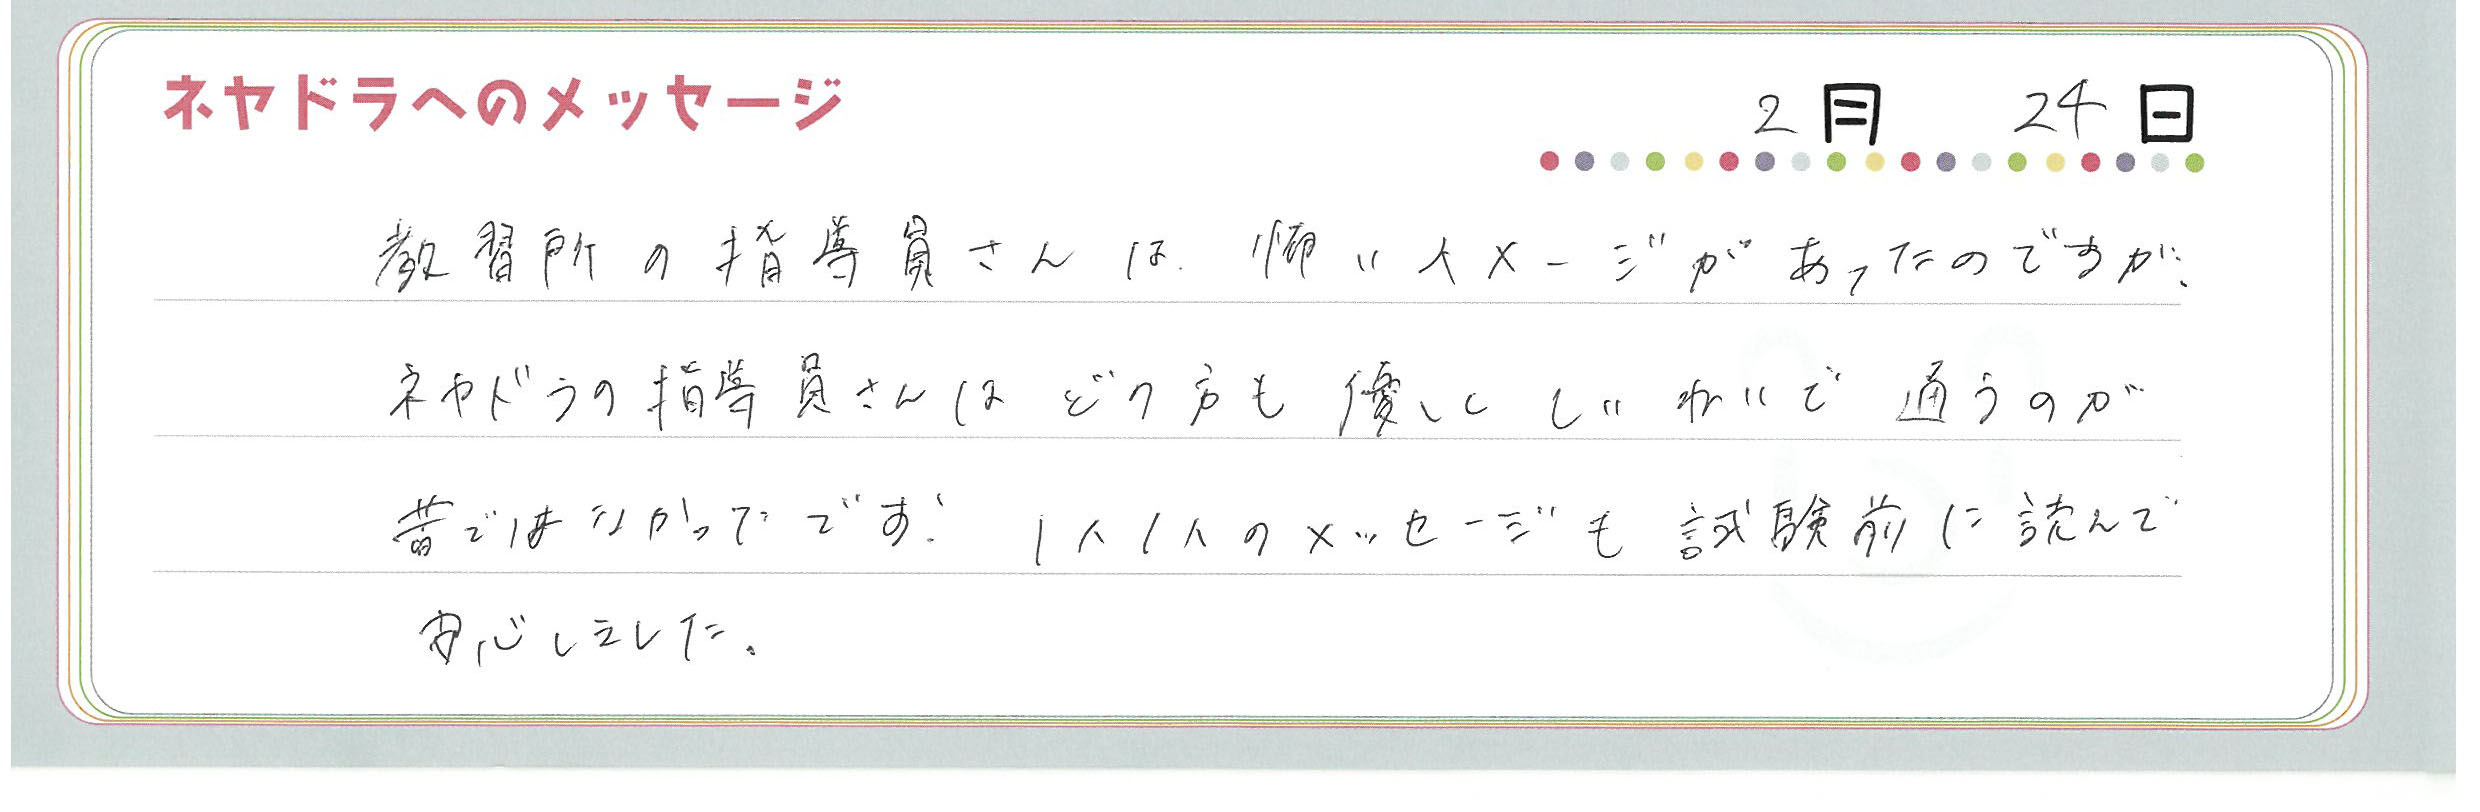 ネヤドラへのメッセージ
2月 24日
教習所の指導員さんは、怖いイメージがあったのですが、
ネヤドラの指導員さんはどの方も優しくていねいで通うのが
苦ではなかったです! 1人1人のメッセージも試験前に読んで
安心しました。